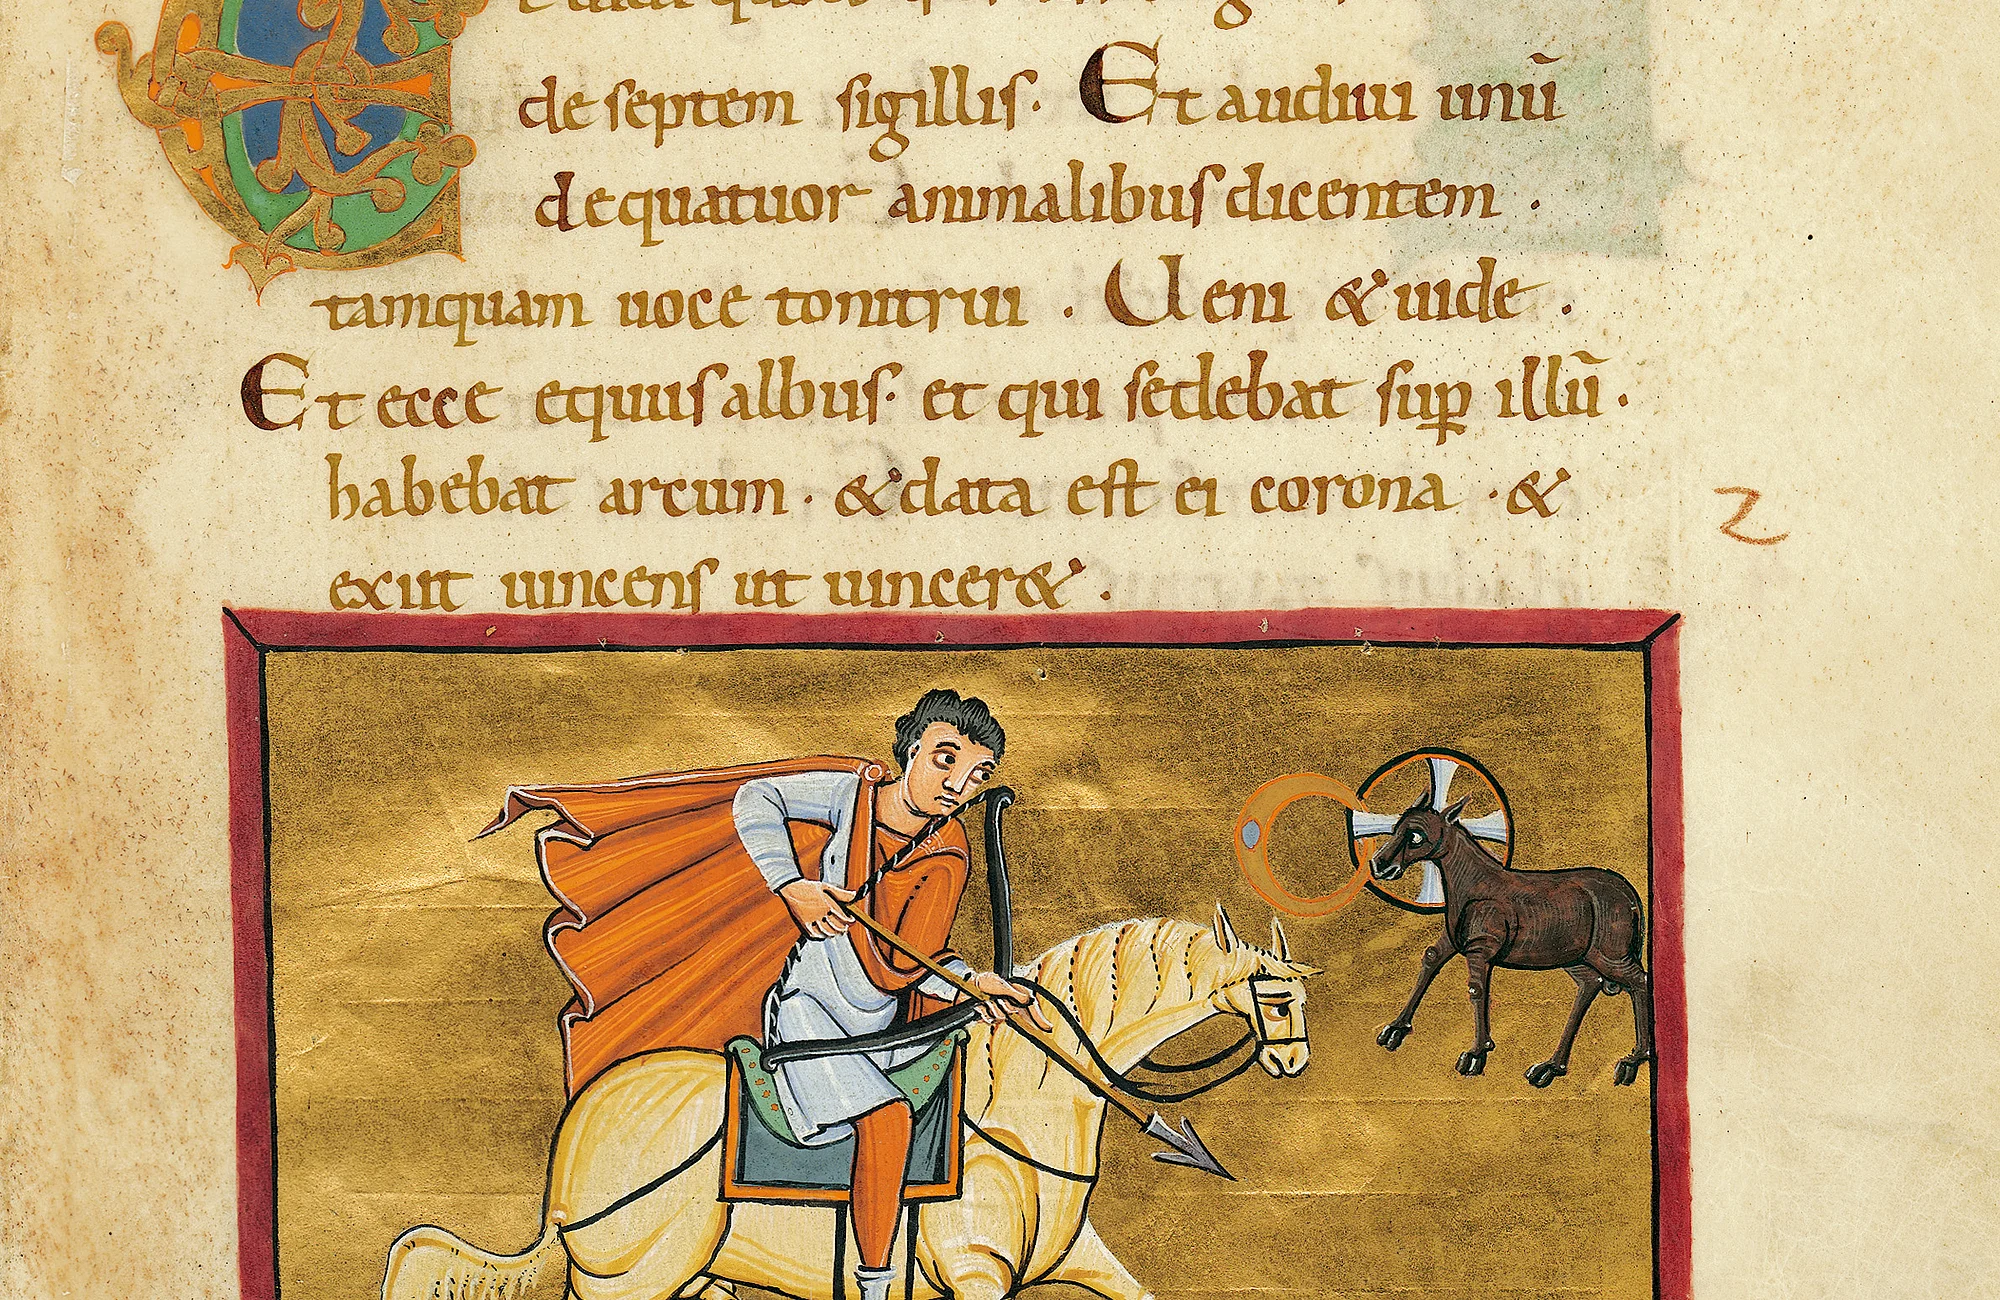 de septem sigillis. Et audiui unū
de quatuor animalibus dicentem .
tamquam uoce tonitrui . Ueni & uide .
Et ecce equus albus. et qui sedebat suꝑ illū.
habebat arcum . & data est ei corona . &
exiit uincens ut uincer& .
2